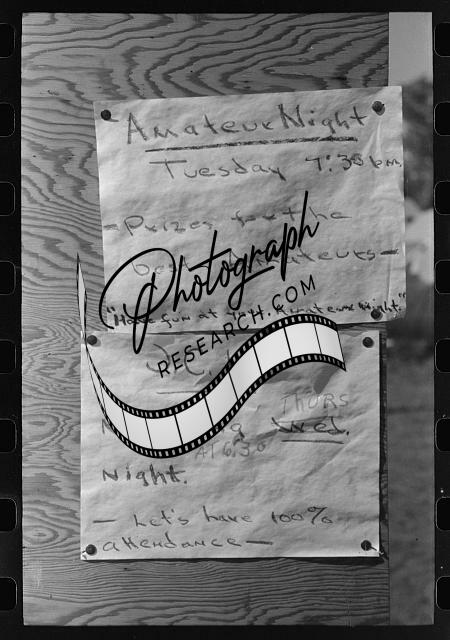 Amateur Night
Tuesday 7:30 p.m.
- Prizes for the
best Amateurs -
"Have fun at Amateur Night."
Photograph
RESEARCH.COM
THURS
Wed.
AT 6:30
Night.
- Let's have 100%
attendance -